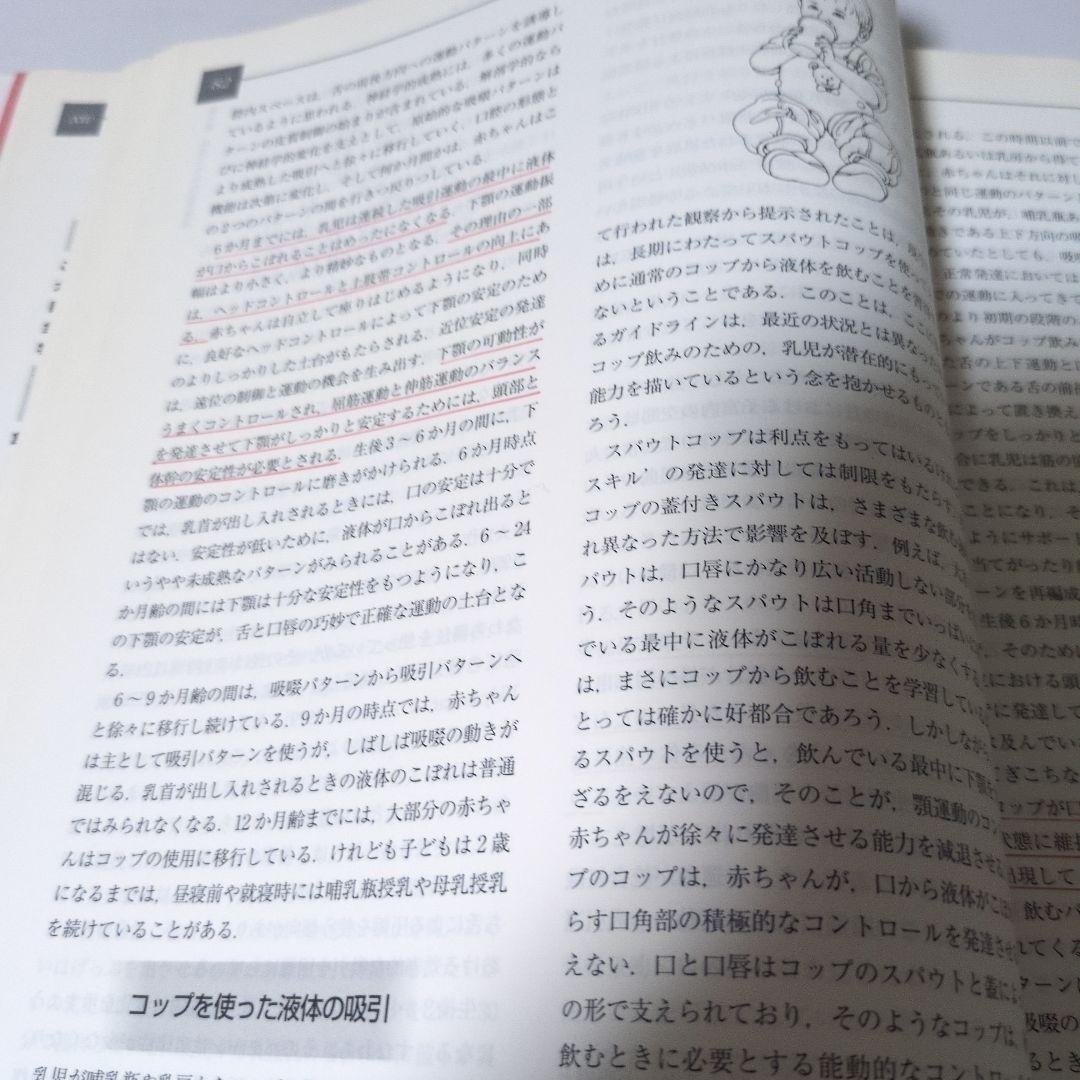 82
腔内スペースは，舌の前後方向への運動パターンを誘導し
ているように思われる．神経学的成熟には，多くの運動パ
ターンの皮質制御の始まりが含まれている．解剖学的なら
びに神経学的変化を支えとして，原始的な吸啜パターンは
より成熟した吸引へと徐々に移行していく．口腔の形態と
機能は次第に変化し，そして何か月間かは，赤ちゃんはこ
の2つのパターンの間を行きつ戻りつしている．
6か月までには，乳児は連続した吸引運動の最中に液体
が口からこぼれることはめったになくなる．下顎の運動振
幅はより小さく，より精妙なものとなる．その理由の一部
は，ヘッドコントロールと上肢帯コントロールの向上にあ
る．赤ちゃんは自立して座りはじめるようになり，同時
に，良好なヘッドコントロールによって下顎の安定のため
のよりしっかりした土台がもたらされる．近位の安定の発達
は，遠位の制御と運動の機会を生み出す．下顎の可動性が
うまくコントロールされ，屈筋運動と伸筋運動のバランス
を発達させて下顎がしっかりと安定するためには，頭部と
体幹の安定性が必要とされる．生後3～6か月の間に，下
顎の運動のコントロールに磨きがかけられる．6か月時点
では，乳首が出し入れされるときには，口の安定は十分で
はない．安定性が低いために，液体が口からこぼれ出ると
いうやや未成熟なパターンがみられることがある．6～24
か月齢の間には下顎は十分な安定性をもつようになり，こ
の下顎の安定が，舌と口唇の巧妙で正確な運動の土台とな
る．
6～9か月齢の間は，吸啜パターンから吸引パターンへ
と徐々に移行し続けている．9か月の時点では，赤ちゃん
は主として吸引パターンを使うが，しばしば吸啜の動きが
混じる．乳首が出し入れされるときの液体のこぼれは普通
ではみられなくなる．12か月齢までには，大部分の赤ちゃ
んはコップの使用に移行している．けれども子どもは2歳
になるまでは，昼寝前や就寝時には哺乳瓶授乳や母乳授乳
を続けていることがある．
コップを使った液体の吸引
て行われた観察から提示されたことは，
は，長期にわたってスパウトコップを使っ
めに通常のコップから液体を飲むことを
ないということである．このことは，ここ
るガイドラインは，最近の状況とは異なった
コップ飲みのための，乳児が潜在的にもっ
能力を描いているという念を抱かせるもの
ろう．
スパウトコップは利点をもってはいるけれ
スキル の発達に対しては制限をもたらす
コップの蓋付きスパウトは，さまざまな飲む
れ異なった方法で影響を及ぼす．例えば，
パウトは，口唇にかなり広い活動しない部分を
う．そのようなスパウトは口角までいっぱい
ている最中に液体がこぼれる量を少なくする
は，まさにコップから飲むことを学習している
とっては確かに好都合であろう．しかしながら
るスパウトを使うと，飲んでいる最中に下顎を
ざるをえないので，そのことが，顎運動のコン
赤ちゃんが徐々に発達させる能力を減退させる
プのコップは，赤ちゃんが，口から液体がこぼ
らす口角部の積極的なコントロールを発達させ
えない．口と口唇はコップのスパウトと蓋によ
の形で支えられており，そのようなコップは，
飲むときに必要とする能動的なコントロ
される．この時期以前で
赤ちゃんはそれに対し
と同じ運動のパターン
その乳児が，哺乳瓶ある
きである上下方向の吸
ていたとしても，吸啜
正常発達においては
の運動に入ってきて
より初期の段階の
ちゃんがコップ飲み
た舌の上下運動と
ーンである舌の前後
によって置き換え
ップをしっかりと
合に乳児は筋の
できる．これは，
ことになり，そ
ようにサポート
当てがったり
ーンを再編成
生後6か月時
，そのために
における頭
に発達して
及んでいる
ぎこちな
コップが口
状態に維持
出現して
飲むパ
れてくる
ターン
吸啜の
るとき